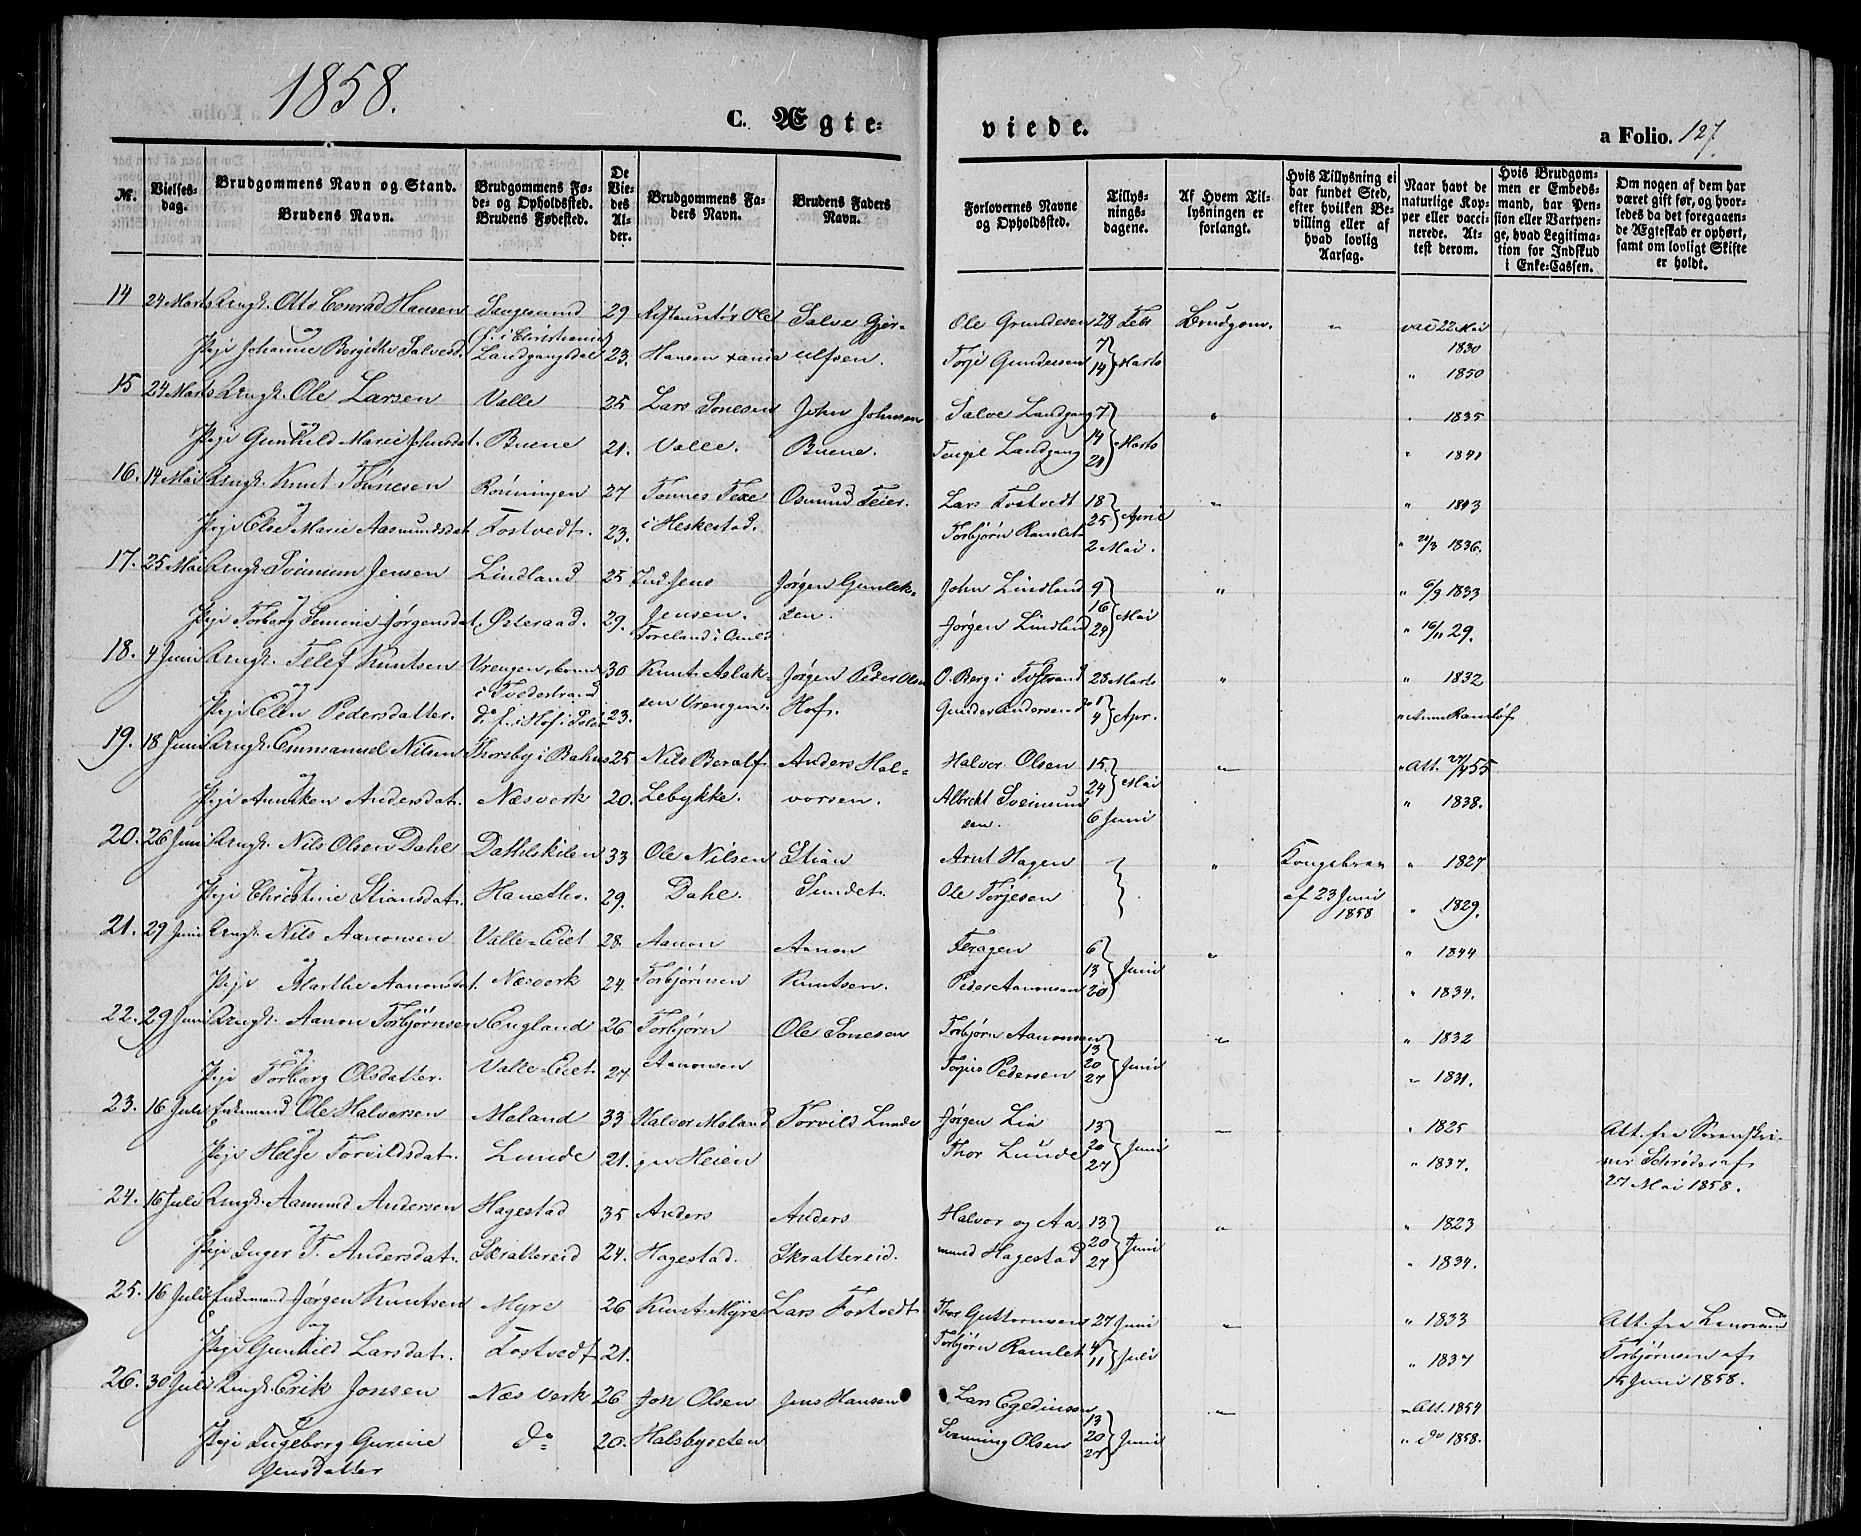 1858.
C. Ægte-
viede.
a Folio. 127.
№.
Vielses-
dag.
Brudgommens Navn og Stand.
Brudens Navn.
Brudgommens Fø-
de- og Opholdssted.
Brudens Fødested.
De
Vie-
des
Al-
der.
Brudgommens Fa-
ders Navn.
Brudens Faders
Navn.
Forlovernes Navne
og Opholdssted.
Tillys-
nings-
dagene.
Af Hvem Til-
lysningen er
forlangt.
Hvis Tillysning ei
har fundet Sted,
efter hvilken Be-
villing eller af
hvad lovlig
Aarsag.
Naar havt de
naturlige Kop-
per eller vacci-
nerede. At-
test derom.
Hvis Brudgom-
men er Embeds-
mand, har Pen-
sion eller Vartpen-
ge, hvad Legitima-
tion for Indskud
i Enke-Cassen.
Om nogen af dem har
været gift før, og hvor-
ledes da det foregaaen-
de Ægteskab er ophørt,
samt om lovligt Skifte
er holdt.
14 24 Marts Ungk. Otto Conrad Hansen Langesund 29 Restauratør Ole Salve Gjer- Ole Gundersen 28 Febr Brudgom. " vac 22 Mai 1830
og f. i Christiania
Pige Johanne Borgithe Salvesd. Landgangsdal 23. Hansen xania ulfsen. Torje Gundersen 7 14 Marts " 1850
15 24 Marts Ungk. Ole Larsen Valle 25 Lars Sonesen John Johnsen Salve Landgang 7 " " 1835
og
Pige Gunhild Marie Johnsdat. Buene 21. Valle. Buene. Tengil Landgang 14 21 Marts " 1841
16. 14 Mai Ungk. Knut Tønnesen Rønningen 27 Tønnes Texe Osmund Feier. Lars Fostvedt 18 " " 1843
og
Pige Else Marie Aasmundsdat Fostvedt. 23. i Heskestad. Torbjørn Ramlet 25 April 2 Mai. " 20/3 1836.
17. 25 Mai Ungk. Sveinum Jensen Lindland 25. Ind. Jens Jørgen Gunlek- John Lindland 9 " " 6/9 1833
og
Pige Torborg Semine Jørgensdat. Østeraad. 29. Jensen. sen. Jørgen Lindland 16 24 Mai " 16/11 29.
Foreland i Omlid
18. 4 Juni Ungk. Tellef Knutsen Vrengen, boende 30 Knut Aslak- Jørgen Peder Olsen O. Berg i Tvdstrand 28 Marts " " 1832
og i Tvedestrand
Pige Elen Pedersdatter. do f. i Hof i Solør 23. sen Vrengen. Hof. Gunder Andersen do 1 4 Apr. "
19. 18 Juni Ungk. Emmanuel Nilsen Thorsby i Bahus 25 Nils Beralf Anders Hal- Halvor Olsen 15 " " Att. 24/4 55
og
Pige Anniken Andersdat. Næsverk 20. Lebykke. vorsen. Albrecht Sveinund 24 Mai " 1838.
sen. 6 Juni
20. 26 Juni Ungk. Nils Olsen Dahl Dathlskilen 33 Ole Nilsen Stian Arnt Hagen " Kongebrev " 1827
og
Pige Christine Stiansdat. Haneth. 29. Dahl. Sundet. Ole Torjesen af 23 Juni 1858 " 1829.
21. 29 Juni Ungk. Nils Aanonsen Valle-Eiet 28. Aanon Aanon Feragen 6 " " 1844
og
Pige Marthe Aanonsdat. Næsverk 24. Torbjørnsen Knutsen. Peder Aanonsen 13 20 Juni " 1834.
22. 29 Juni Ungk. Aanon Torbjørnsen England 26 Torbjørn Ole Sonesen Torbjørn Aanonsen 13 " " 1832
og
Pige Torborg Olsdatter. Valle-Eiet. 27 Aanonsen Torjus Pedersen 20 27 Juni " 1831.
23. 16 Juli Enkemand Ole Halvorsen Moland 33 Halvor Moland Torvild Lunde Jørgen Lia 13 " " 1825 Att. fra Sorenskri-
og
Pige Helge Torvildsdat. Lunde 21. Heien Thor Lunde 20 27 Juni " 1837. ver Schrøder af
27 Mai 1858.
24. 16 Juli Ungk. Aamund Andersen Hagestad 35 Anders Anders Halvor og Aa- 13 " " 1823
og
Pige Inger T. Andersdat. Skrattereid 24. Hagestad. Skrattereid. mund Hagestad 20 27 Juni " 1834.
25. 16 Juli Enkemand Jørgen Knutsen Myre 26 Knut Myre Lars Fostvedt Thor Guttormsen 27 Juni " " 1833 Att. fra Lensmand
og
Pige Gunhild Larsdat. Fostvedt 21. Torbjørn Ramlet 4 11 Juli " 1837 Torbjørnsen af
15 Juni 1858.
26. 30 Juli Ungk. Erik Jonsen Næs Verk 26 Jon Olsen Jens Hansen Lars Egedinsen 13 " " Att. 1854
og
Pige Ingeborg Gurine do 20. Halsbyreten Svenning Olsen 20 27 Juni " do 1858.
Jensdatter